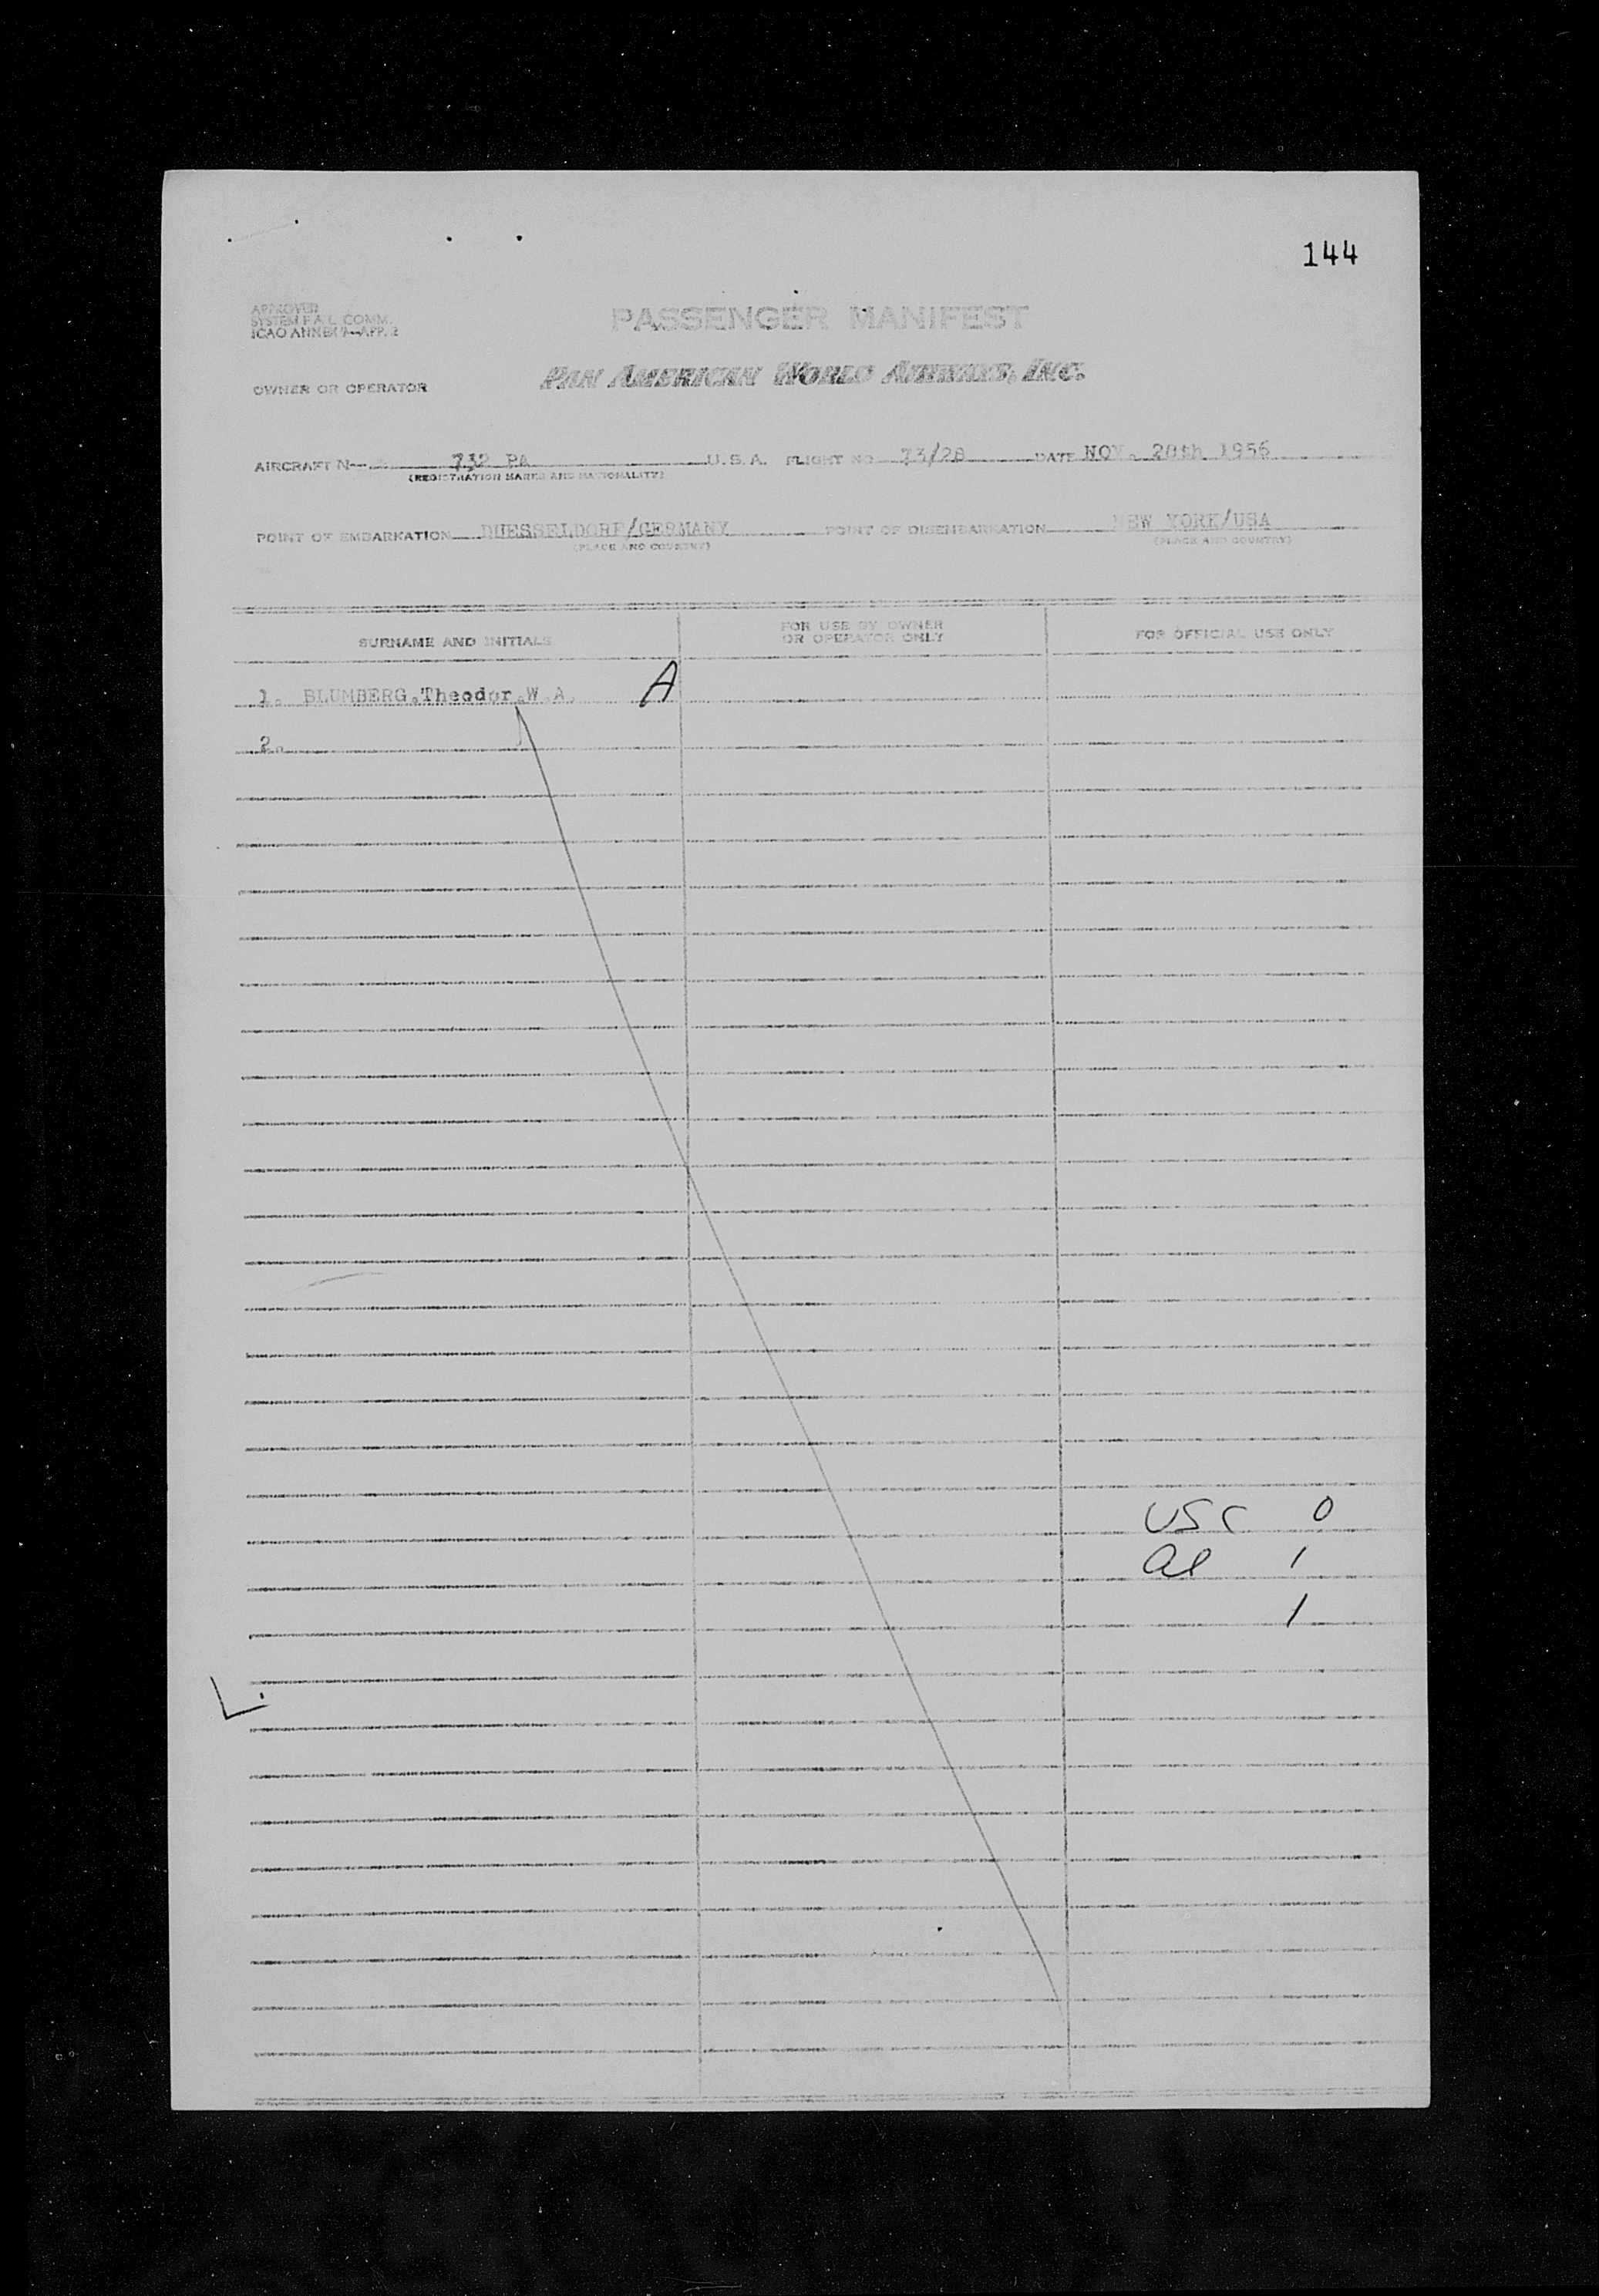 144
APPROVED
SYSTEM F.A.L. COMM.
ICAO ANNEX 9—APP. 2
PASSENGER MANIFEST
OWNER OR OPERATOR PAN AMERICAN WORLD AIRWAYS, INC.
AIRCRAFT N— 732 PA U.S.A. FLIGHT NO. 73/28 DATE NOV. 28th 1956
(REGISTRATION MARKS AND NATIONALITY)
POINT OF EMBARKATION DUESSELDORF/GERMANY POINT OF DISEMBARKATION NEW YORK/USA
(PLACE AND COUNTRY) (PLACE AND COUNTRY)
SURNAME AND INITIALS FOR USE BY OWNER OR OPERATOR ONLY FOR OFFICIAL USE ONLY
1. BLUMBERG.Theodor.W.A. A
2.
USC 0
al 1
1